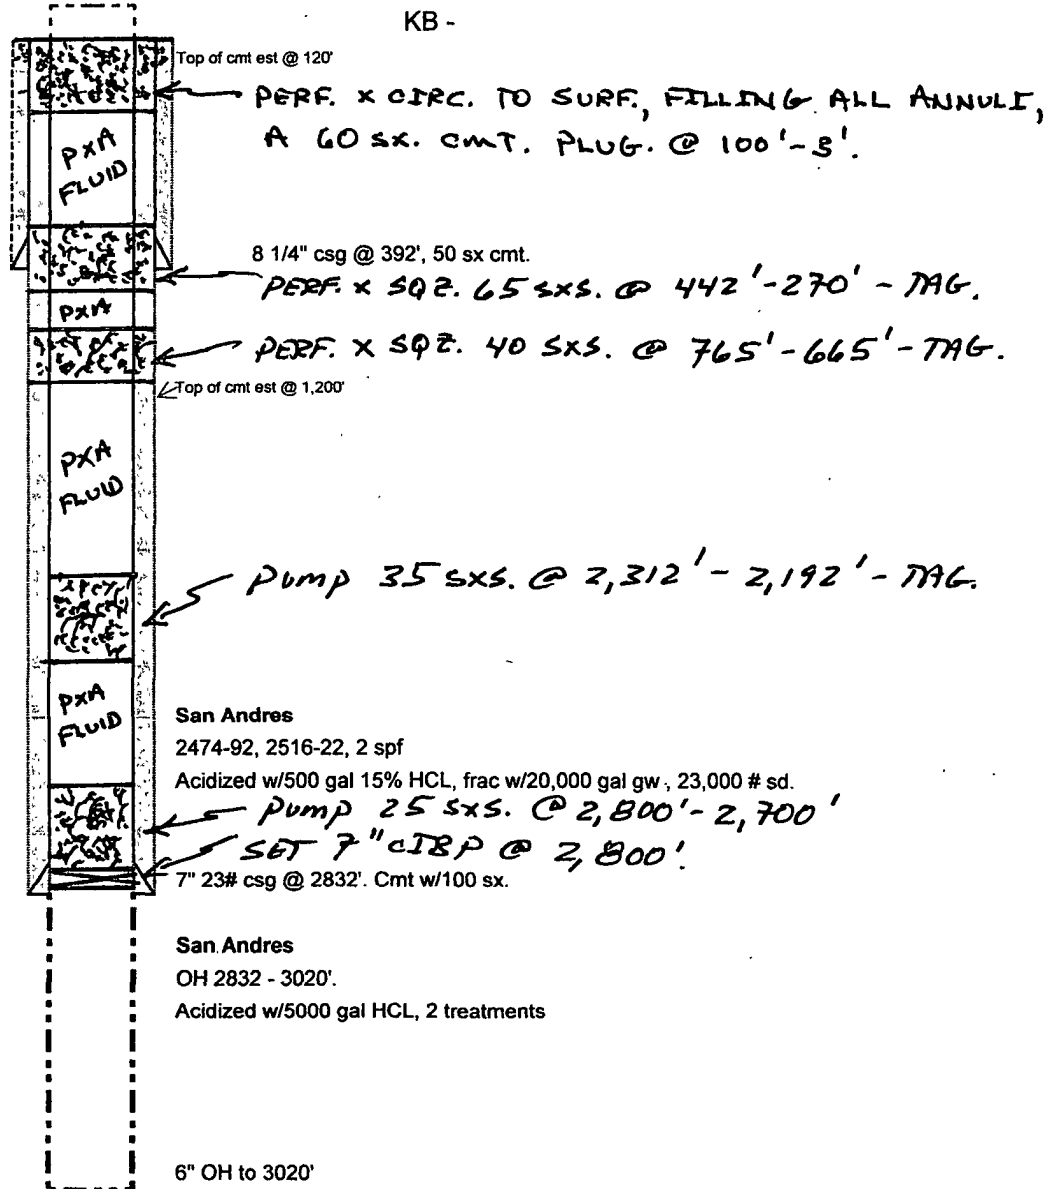 KB -
Top of cmt est @ 120'
PERF. X CIRC. TO SURF., FILLING ALL ANNULI,
A 60 SX. CMT. PLUG. @ 100'-3'.
PXA
FLUID
8 1/4" csg @ 392', 50 sx cmt.
PERF. X SQZ. 65 SXS. @ 442'-270' - TAG.
PXA
PERF. X SQZ. 40 SXS. @ 765'-665'-TAG.
Top of cmt est @ 1,200'
PXA
FLUID
PUMP 35 SXS. @ 2,312' - 2,192' - TAG.
PXA
FLUID
San Andres
2474-92, 2516-22, 2 spf
Acidized w/500 gal 15% HCL, frac w/20,000 gal gw, 23,000 # sd.
PUMP 25 SXS. @ 2,800'- 2,700'
SET 7" CIBP @ 2,800'.
7" 23# csg @ 2832'. Cmt w/100 sx.
San Andres
OH 2832 - 3020'.
Acidized w/5000 gal HCL, 2 treatments
6" OH to 3020'